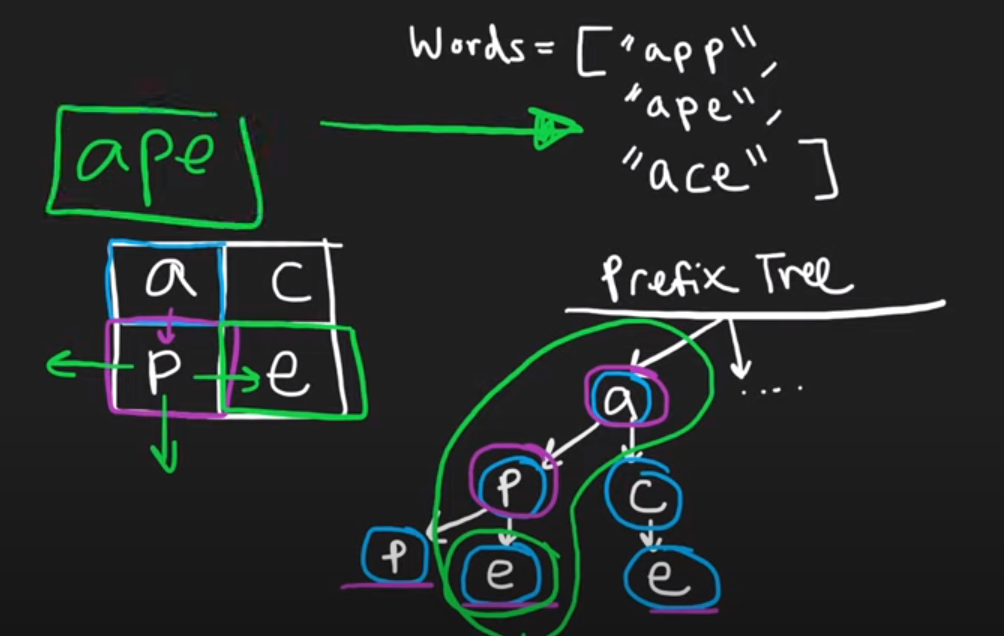 Words = ["app",
"ape",
"ace"]
ape
a c
p e
Prefix Tree
a
....
p c
p e e